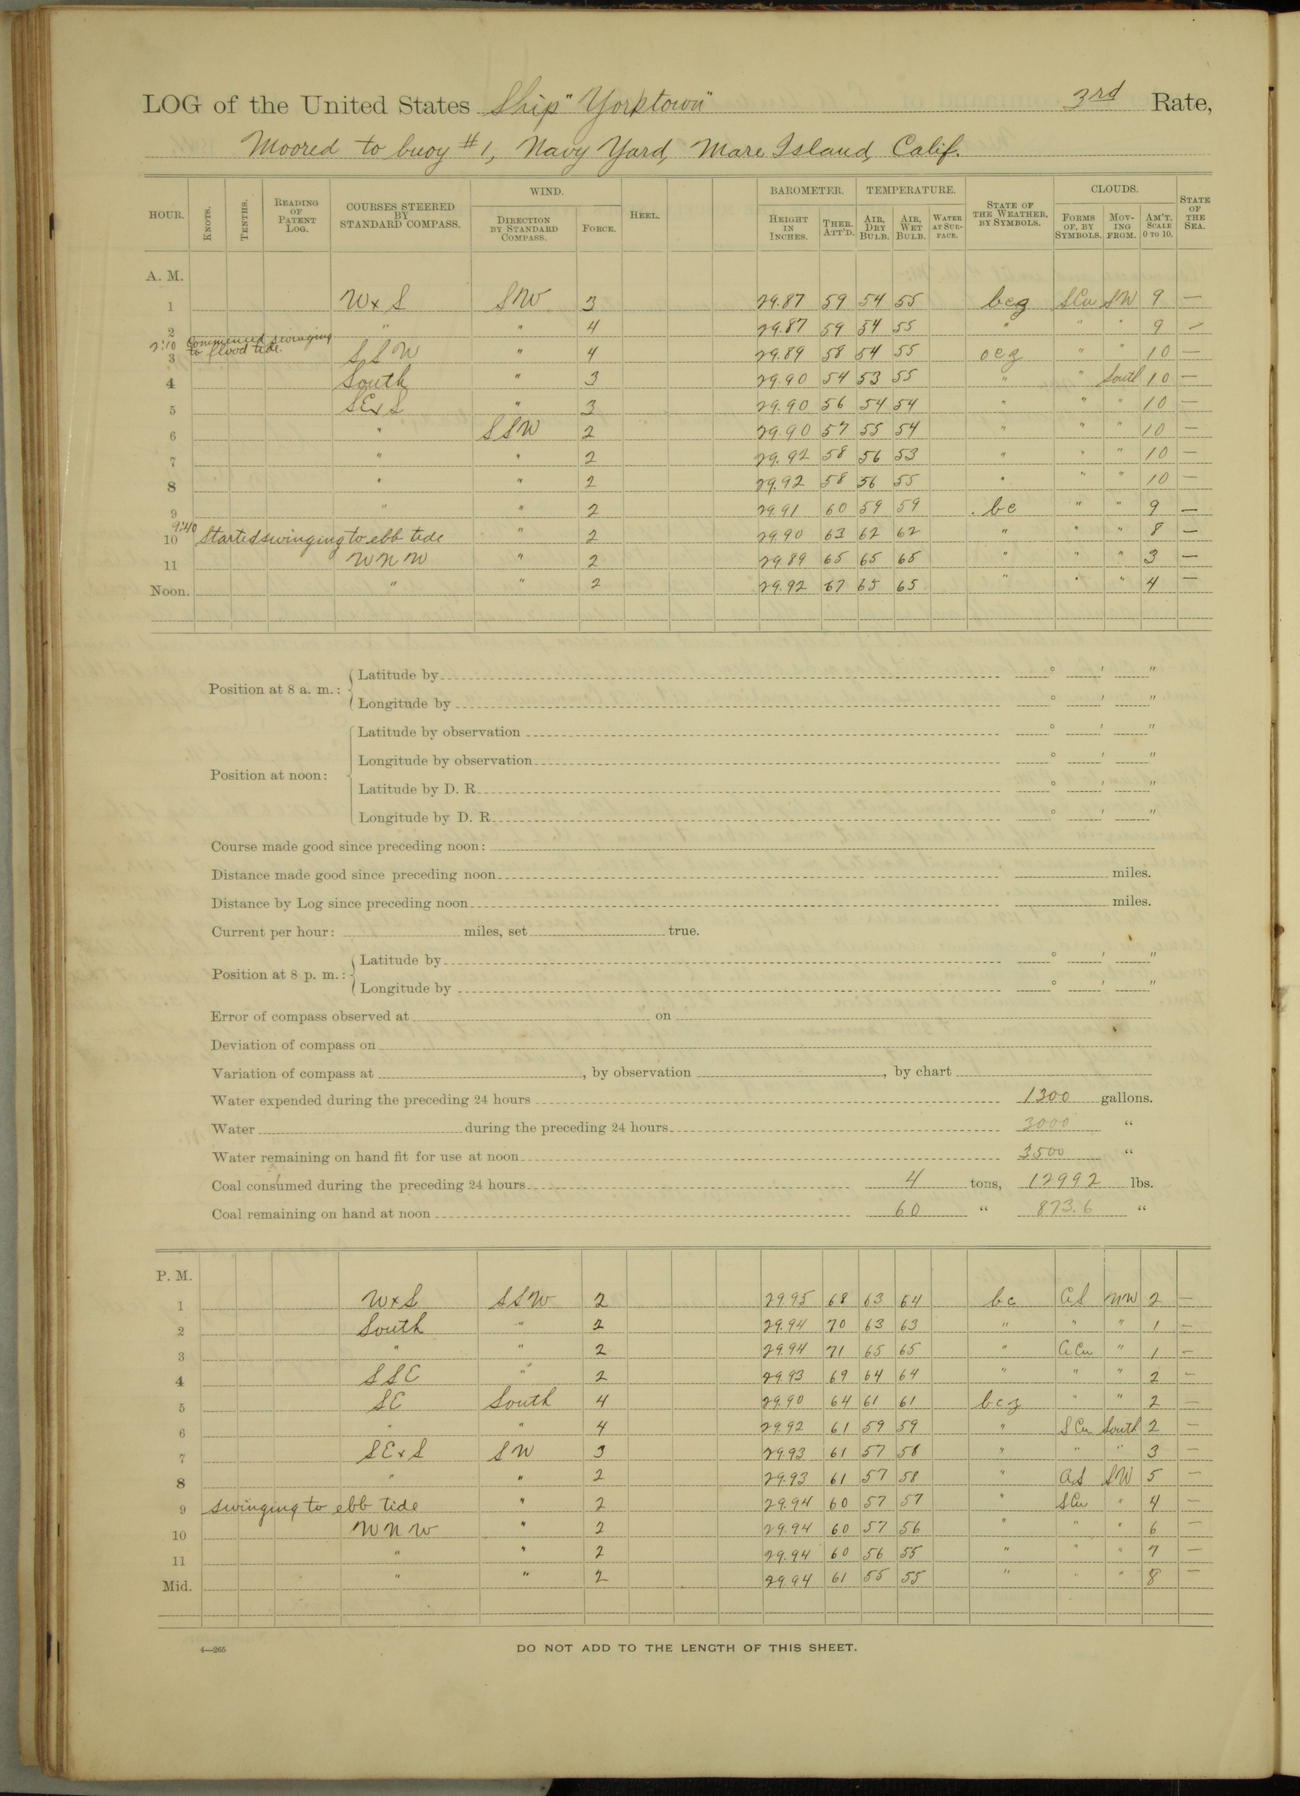 LOG of the United States Ship "Yorktown" 3rd Rate,
Moored to buoy #1, Navy Yard, Mare Island, Calif.
HOUR. KNOTS. TENTHS. READING OF PATENT LOG. COURSES STEERED BY STANDARD COMPASS. WIND. DIRECTION BY STANDARD COMPASS. FORCE. HEEL. BAROMETER. HEIGHT IN INCHES. THER. ATT'D. TEMPERATURE. AIR, DRY BULB. AIR, WET BULB. WATER AT SURFACE. STATE OF THE WEATHER, BY SYMBOLS. CLOUDS. FORMS OF, BY SYMBOLS. MOVING FROM. AM'T. SCALE 0 TO 10. STATE OF THE SEA.
A. M.
1 W x S SW 3 29.87 59 54 55 bcg SCu SW 9 —
2 " " 4 29.87 59 54 55 " " " 9 —
2:10 Commenced swinging to flood tide.
3 SSW " 4 29.89 58 54 55 ocg " " 10 —
4 South " 3 29.90 54 53 55 " " South 10 —
5 SExS " 3 29.90 56 54 54 " " " 10 —
6 " SSW 2 29.90 57 55 54 " " " 10 —
7 " " 2 29.92 58 56 53 " " " 10 —
8 " " 2 29.92 58 56 55 " " " 10 —
9 " " 2 29.91 60 59 59 bc " " 9 —
9:40
10 Started swinging to ebb tide " 2 29.90 63 62 62 " " " 8 —
11 WNW " 2 29.89 65 65 65 " " " 3 —
Noon. " " 2 29.92 67 65 65 " " " 4 —
Position at 8 a. m.: Latitude by ° ′ ″
Longitude by ° ′ ″
Position at noon: Latitude by observation ° ′ ″
Longitude by observation ° ′ ″
Latitude by D. R. ° ′ ″
Longitude by D. R. ° ′ ″
Course made good since preceding noon:
Distance made good since preceding noon miles.
Distance by Log since preceding noon miles.
Current per hour: miles, set true.
Position at 8 p. m.: Latitude by ° ′ ″
Longitude by ° ′ ″
Error of compass observed at on
Deviation of compass on
Variation of compass at , by observation , by chart
Water expended during the preceding 24 hours 1300 gallons.
Water during the preceding 24 hours 3000 "
Water remaining on hand fit for use at noon 3500 "
Coal consumed during the preceding 24 hours 4 tons, 12992 lbs.
Coal remaining on hand at noon 60 " 873.6 "
P. M.
1 WxS SSW 2 29.95 68 63 64 bc AS NW 2 —
2 South " 2 29.94 70 63 63 " " " 1 —
3 " " 2 29.94 71 65 65 " ACu " 1 —
4 SSE " 2 29.93 69 64 64 " " " 2 —
5 SE South 4 29.90 64 61 61 bcz " " 2 —
6 " " 4 29.92 61 59 59 " SCu South 2 —
7 SExS SW 3 29.93 61 57 58 " " " 3 —
8 " " 2 29.93 61 57 58 " AS SW 5 —
9 swinging to ebb tide " 2 29.94 60 57 57 " SCu " 4 —
10 WNW " 2 29.94 60 57 56 " " " 6 —
11 " " 2 29.94 60 56 55 " " " 7 —
Mid. " " 2 29.94 61 55 55 " " " 8 —
4—265 DO NOT ADD TO THE LENGTH OF THIS SHEET.